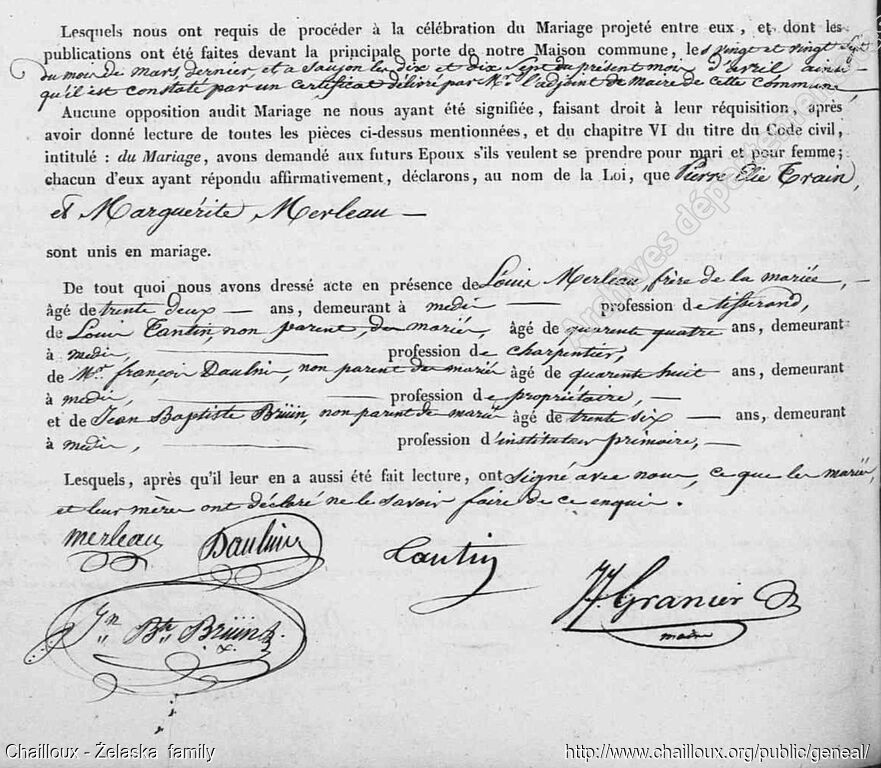 Lesquels nous ont requis de procéder à la célébration du Mariage projeté entre eux, et dont les
publications ont été faites devant la principale porte de notre Maison commune, les vingt et vingt sept
du mois de mars dernier, et a Saujon les dix et dix sept du présent mois d'avril ainsi
qu'il est constaté par un certificat délivré par Mr. l'adjoint de Maire de cette Commune
Aucune opposition audit Mariage ne nous ayant été signifiée, faisant droit à leur réquisition, après
avoir donné lecture de toutes les pièces ci-dessus mentionnées, et du chapitre VI du titre du Code civil,
intitulé : du Mariage, avons demandé aux futurs Epoux s'ils veulent se prendre pour mari et pour femme;
chacun d'eux ayant répondu affirmativement, déclarons, au nom de la Loi, que Pierre Elie Train,
et Marguérite Merleau —
sont unis en mariage.
De tout quoi nous avons dressé acte en présence de Louis Merleau, frère de la mariée, —
âgé de trente deux — ans, demeurant à medis — profession de tisserand,
de Louis Tantin, non parent, des mariés, âgé de quarente quatre ans, demeurant
à medis, — profession de charpentier,
de Mr. françois Daulnis, non parent des mariés âgé de quarente huit — ans, demeurant
à medis, — profession de propriétaire, —
et de Jean Baptiste Brüin, non parent des mariés âgé de trente six — ans, demeurant
à medis, — profession d'instituteur primaire, —
Lesquels, après qu'il leur en a aussi été fait lecture, ont signé avec nous, ce que les mariés,
et leur mères ont déclaré ne le savoir faire de ce enquis.
merleau Daulnis Tantin
Jn Bte Brüin JJ. Granier
maire
Archives départementales
Chailloux - Żelaska family http://www.chailloux.org/public/geneal/